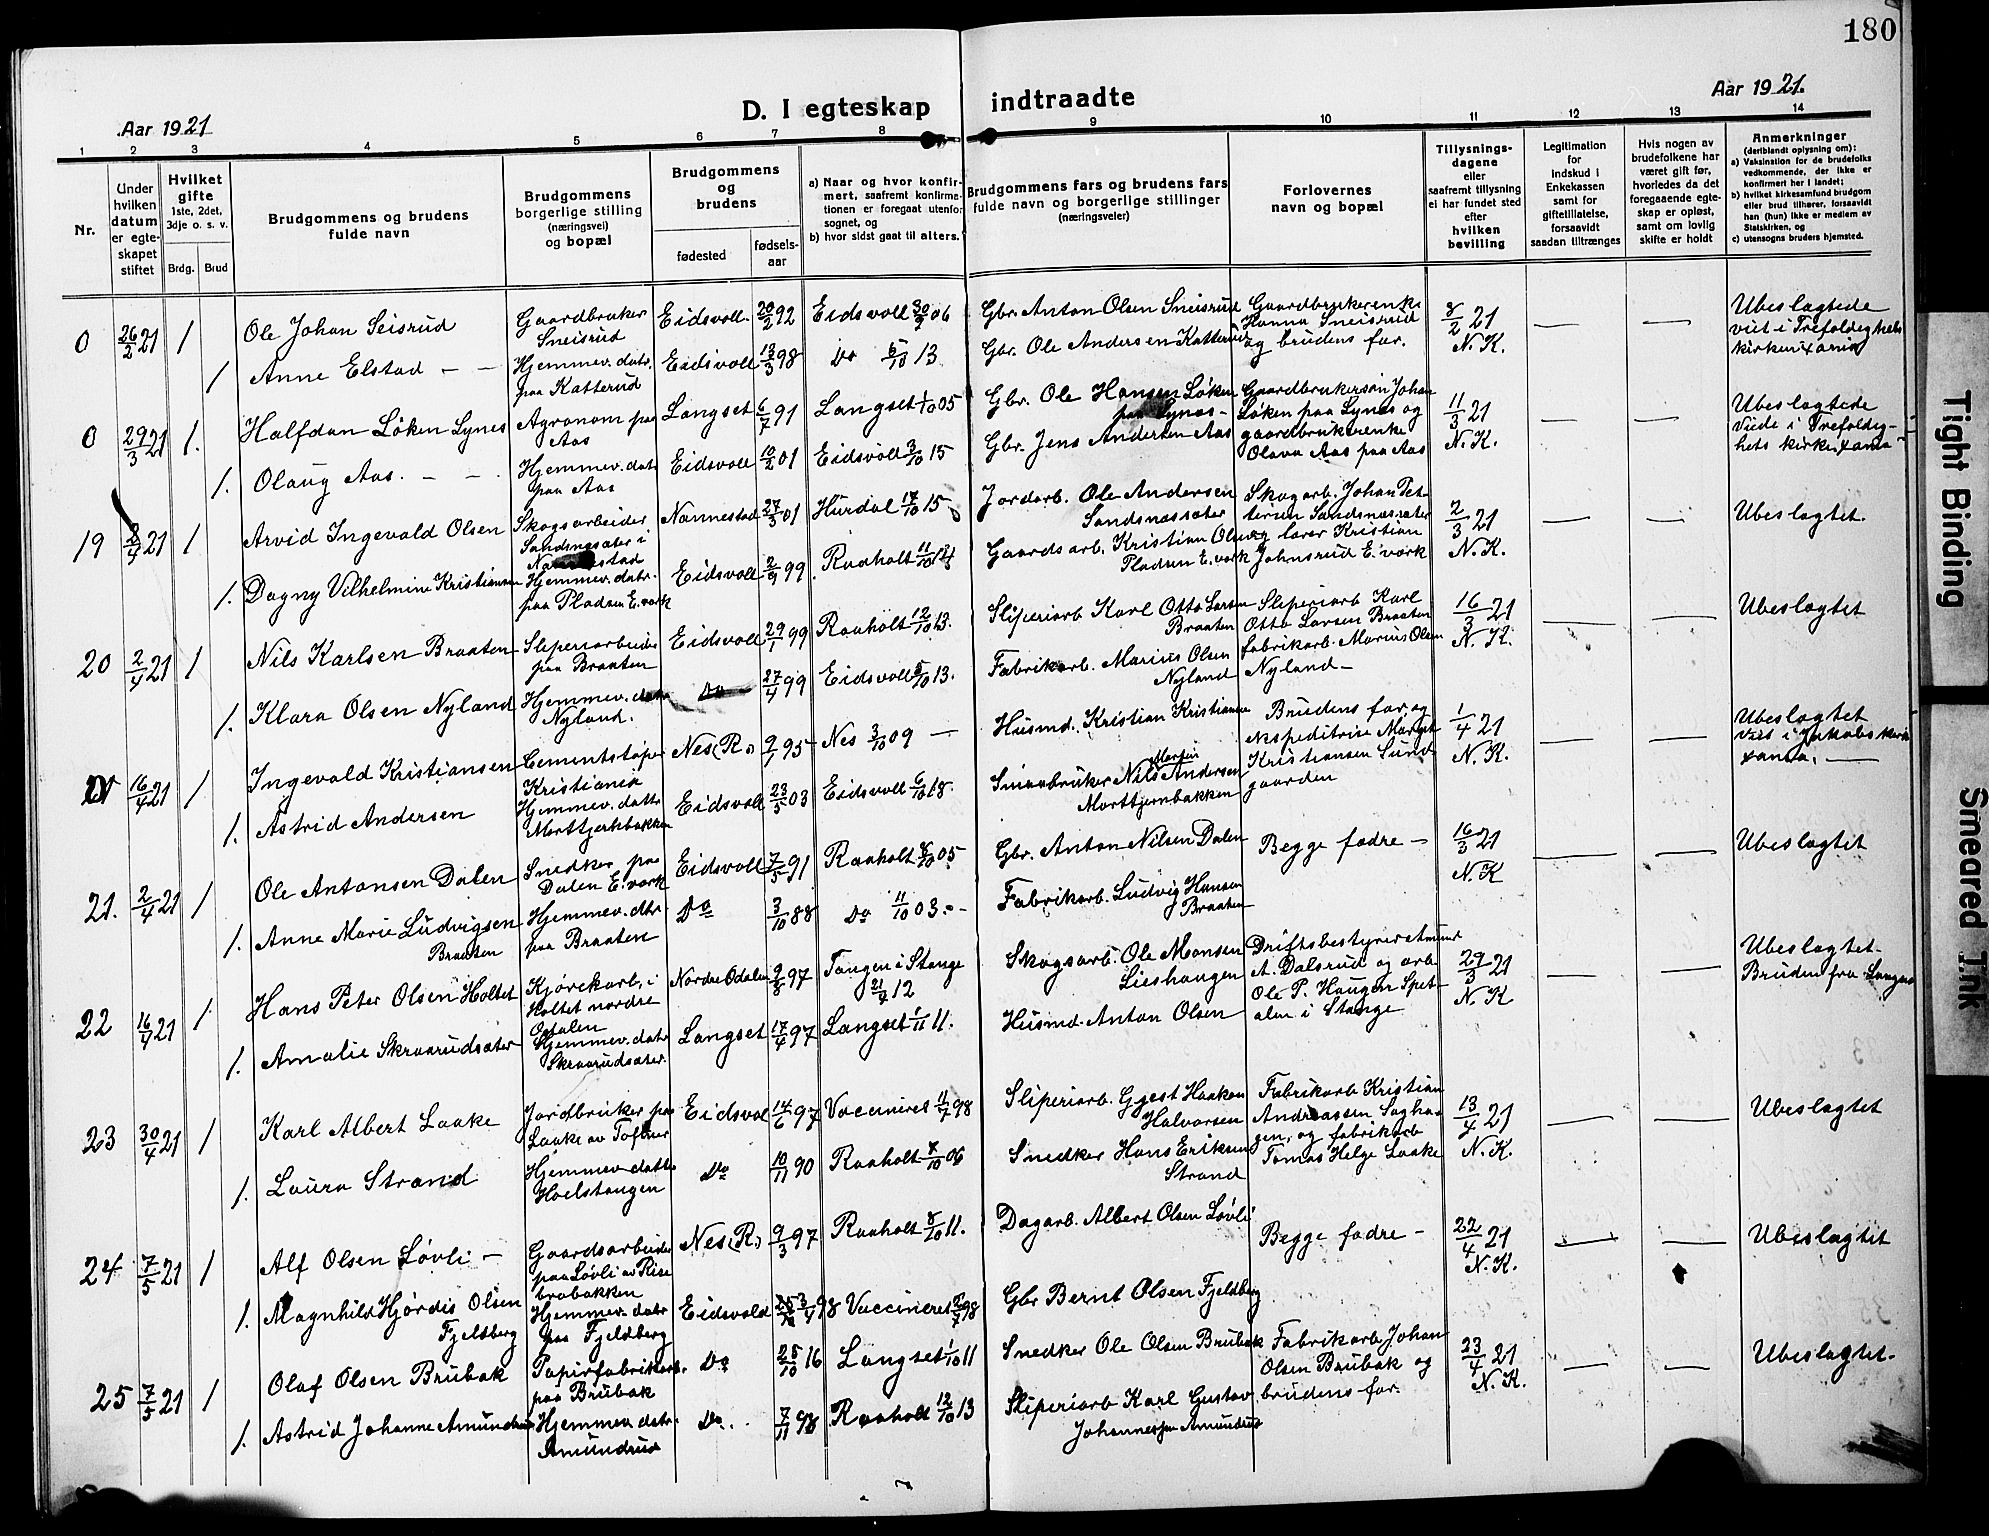 180
D. I egteskap indtraadte
Aar 1921
Aar 1921.
1 2 3 4 5 6 7 8 9 10 11 12 13 14
Nr.
Under hvilken datum er egteskapet stiftet
Hvilket gifte
1ste, 2det, 3dje o. s. v.
Brdg. Brud
Brudgommens og brudens fulde navn
Brudgommens borgerlige stilling (næringsvei) og bopæl
Brudgommens og brudens
fødested
fødselsaar
a) Naar og hvor konfirmert, saafremt konfirmationen er foregaat utenfor sognet, og
b) hvor sidst gaat til alters.
Brudgommens fars og brudens fars fulde navn og borgerlige stillinger
(næringsveier)
Forlovernes navn og bopæl
Tillysningsdagene eller saafremt tillysning ei har fundet sted efter hvilken bevilling
Legitimation for indskud i Enkekassen samt for giftetillatelse, forsaavidt saadan tiltrænges
Hvis nogen av brudefolkene har været gift før, hvorledes da det foregaaende egteskap er opløst, samt om lovlig skifte er holdt
Anmerkninger
(deriblandt oplysning om):
a) Vaksination for de brudefolks vedkommende, der ikke er konfirmert her i landet;
b) hvilket kirkesamfund brudgom eller brud tilhører, forsaavidt han (hun) ikke er medlem av Statskirken, og
c) utensogns bruders hjemsted.
0 26/2 21 1 Ole Johan Seisrud Gaardbruker Sneisrud Eidsvoll 20/2 92 Eidsvoll 06 Gbr. Anton Olsen Sneisrud Gaardbrukerenke Hanna Sneisrud og brudens far. 8/2 21 N. K. — — Ubeslægtede viet i Trefoldighets kirken
1 Anne Elstad — — Hjemmev. datr. paa Katterud Eidsvoll 13/3 98 Do 5/10 13 Gbr. Ole Andersen Katterud
0 29/3 21 1. Halfdan Løken Lynes Agronom paa Aas Langset 6/7 91 Langset 1/10 05 Gbr. Ole Hansen Løken paa Lynæs — Gaardbrukersøn Johan Løken paa Lynæs og gaardbrukerenke Olava Aas paa Aas 11/3 21 N. K. — — Ubeslægtede Viede i Trefoldighets kirke
1. Olaug Aas. — — Hjemmev. datr paa Aas Eidsvoll 10/2 01 Eidsvoll 3/10 15 Gbr. Jens Andersen Aas
19 2/4 21 1 Arvid Ingevald Olsen Skogsarbeider Nannestad 01 Hurdal 17/10 15 Jordarb. Ole Andersen Sandsnæssæter Skogarb. Johan Pettersen Sandsnæssæter og lærer Kristian Johnsrud E. værk 2/3 21 N. K. — — Ubeslægtet.
1. Dagny Vilhelmine Kristiansen Hjemmev. datr. paa Pladsen E. værk Eidsvoll 99 Raaholt 11/10 Gaardsarb. Kristian Olsen Pladsen E. værk
20 2/4 21 1 Nils Karlsen Braaten Sliperiarbeider paa Braaten Eidsvoll 29/1 99 Raaholt 12/10 13. Sliperiarb Karl Otto Larsen Braaten Sliperiarb Karl Otto Larsen Braaten fabrikarb. Marius Olsen Nyland — 16/3 21 N. K. — — Ubeslægtet
1. Klara Olsen Nyland Hjemmev. datr Nyland. Do 27/4 99 Eidsvoll 5/10 13. Fabrikarb. Marius Olsen Nyland
16/4 21 1 Ingevald Kristiansen Cementstøper Kristiania Nes (R.) 9/1 95 Nes 3/10 09 — Husmd. Kristian Kristiansen Brudens far og ekspeditrise Margit Kristiansen Sundgaarden 1/4 21 N. K. — — Ubeslægtet viet i Jakobs kirke
1. Astrid Andersen Hjemmev. datr. Morttjernbakken Eidsvoll 23/5 03 Eidsvoll 6/10 18. Smaabruker Nils Martin Andersen Morttjernbakken
21. 2/4 21 1 Ole Antonsen Dalen Snedker paa Dalen E. værk Eidsvoll 7/5 91 Raaholt 8/10 05 Gbr. Anton Nilsen Dalen Begge fædre — 16/3 21 N. K — — Ubeslægtet
1. Anne Marie Ludvigsen Braaten Hjemmev. dtr. paa Braaten Do 3/10 88 Do 11/10 03. — Fabrikarb. Ludvig Hansen Braaten
22 16/4 21 1 Hans Peter Olsen Holtet Kjørekarb, i Holtet nordre Odalen Nordre Odalen 9/8 97 Tangen i Stange 12 Skogsarb. Ole Monsen Lieshaugen Driftsbestyrer Amund A. Dalsrud og arb Ole P. Haugen Spetalen i Stange 29/3 21 N. K — — Ubeslægtet. Bruden fra Langset
1. Amalie Skraarudsæter Hjemmev. datr Skraarudsæter. Langset 17/4 97 Langset 1/11 11. Husmd. Anton Olsen
23 30/4 21 1 Karl Albert Laake Jordbruker paa Laake av Tofterud Eidsvol 14/6 97 Vaccineret 11/7 98 Sliperiarb. Gjest Haakon Halvorsen Fabrikarb Kristian Andreassen Laghaugen, og fabrikarb Tomas Helge Laake 13/4 21 N. K. — — Ubeslægtet
1. Laura Strand Hjemmev datr Hoelstangen Do 10/11 90 Raaholt 7/10 06 Snedker Hans Eriksen Strand
24 7/5 21 1 Alf Olsen Løvli — Gaardsarbeider paa Løvli av Risebrobakken Nes (R.) 9/3 97 Raaholt 8/10 11. Dagarb. Albert Olsen Løvli Begge fædre — 22/4 21 N. K. — — Ubeslægtet
1. Magnhild Hjørdis Olsen Fjeldberg Hjemmev. datr paa Fjeldberg Eidsvold 3/4 98 Vaccineret 98 Gbr Bernt Olsen Fjeldberg
25 7/5 21 1 Olaf Olsen Brubak Papirfabrikarb. paa Brubak Do 25/10 16 Langset 1/10 11 Snedker Ole Olsen Brubak Fabrikarb. Johan Olsen Brubak og brudens far. 23/4 21 N. K. — — Ubeslægtet.
1. Astrid Johanne Amundrud Hjemmev. datr. Amundrud Do. 7/11 98 Raaholt 12/10 13 Sliperiarb Karl Gustav Johannessen Amundrud
Tight Binding
Smeared Ink